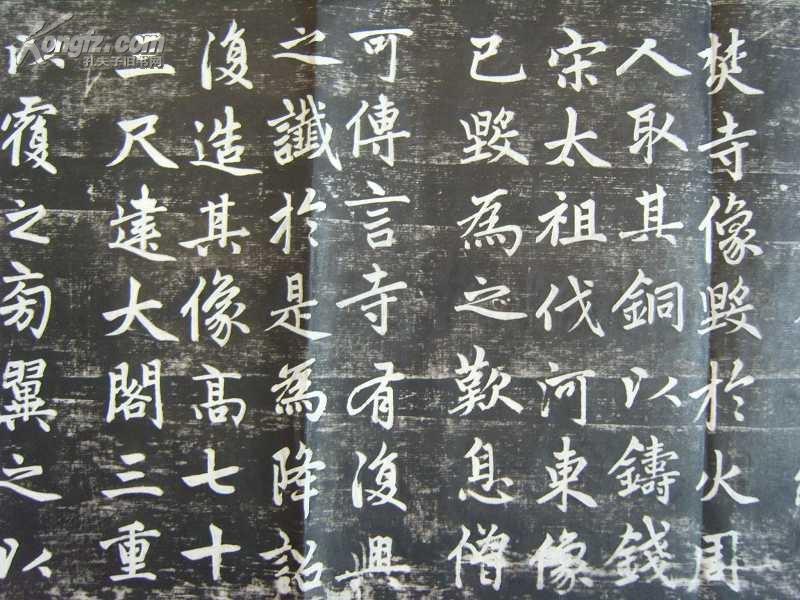 焚寺像毀於火周
人取其銅以鑄錢
宋太祖伐河東像
已毀為之歎息僧
可傳言寺有復興
之讖於是為降詔
復造其像高七十
三尺建大閣三重
以覆之旁翼之以
Kongfz.com
孔夫子旧书网